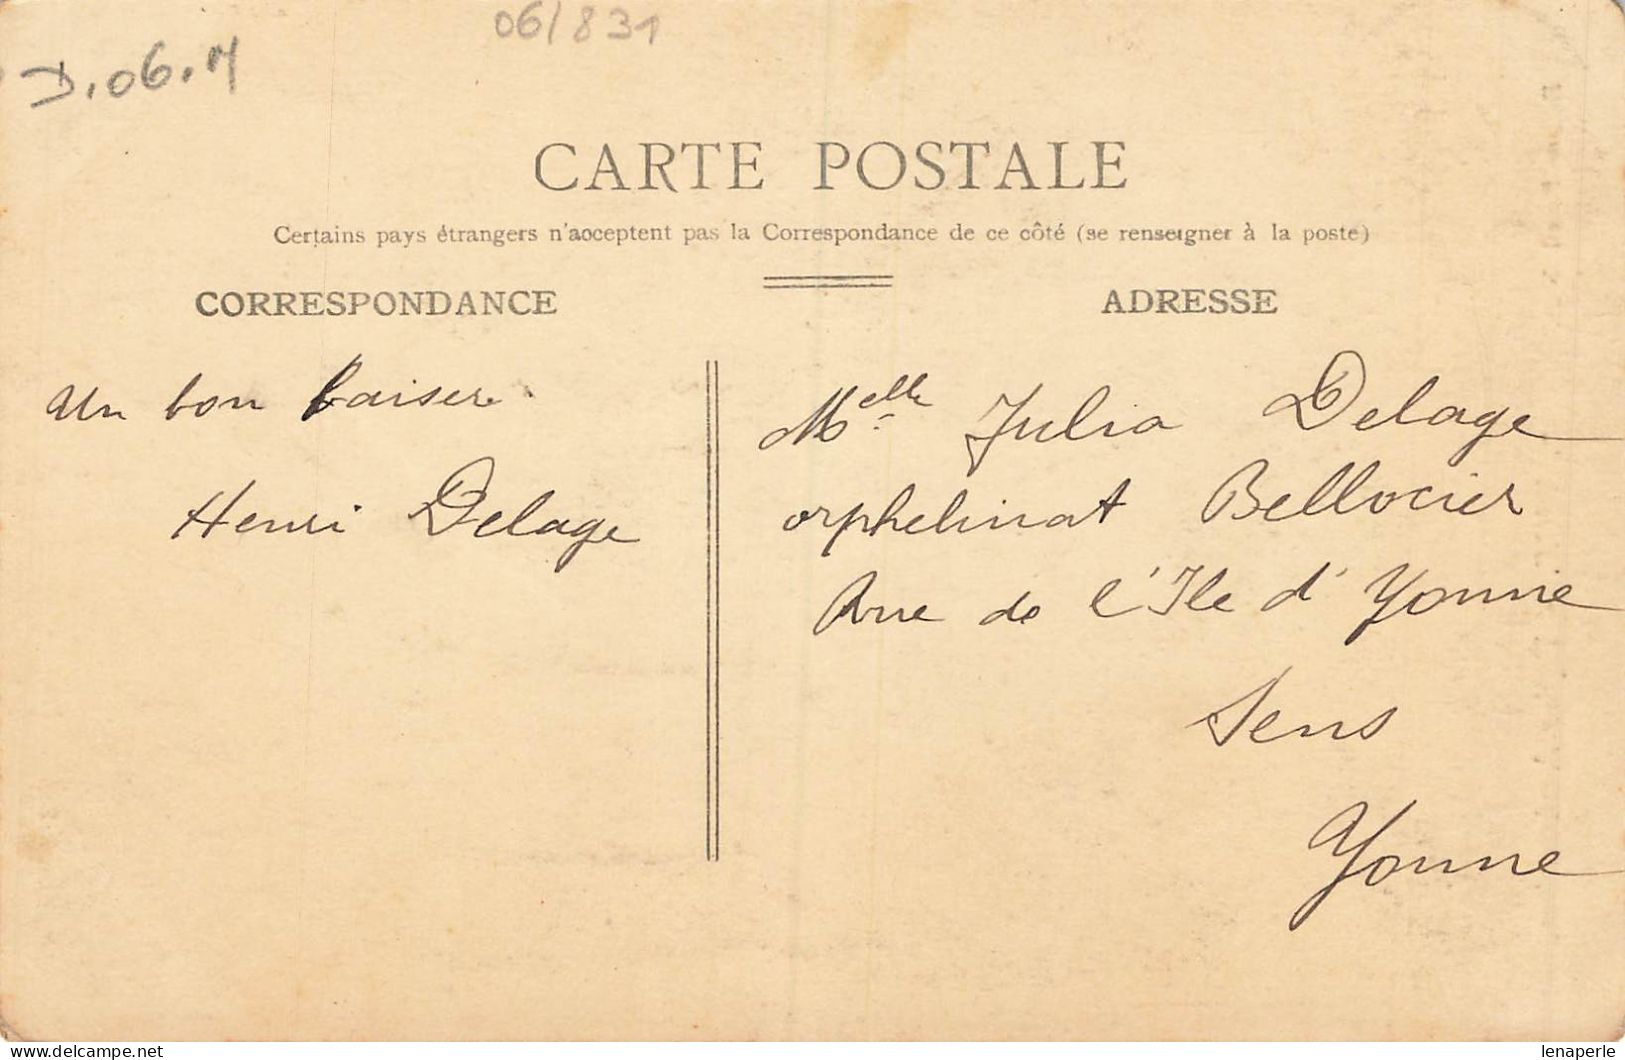 06/831
D.06.M
CARTE POSTALE
Certains pays étrangers n'acceptent pas la Correspondance de ce côté (se renseigner à la poste)
CORRESPONDANCE
Un bon baiser.
Henri Delage
ADRESSE
Melle Julia Delage
orphelinat Bellocier
Rue de l'Ile d'Yonne
Sens
Yonne
www.delcampe.net
lenaperle